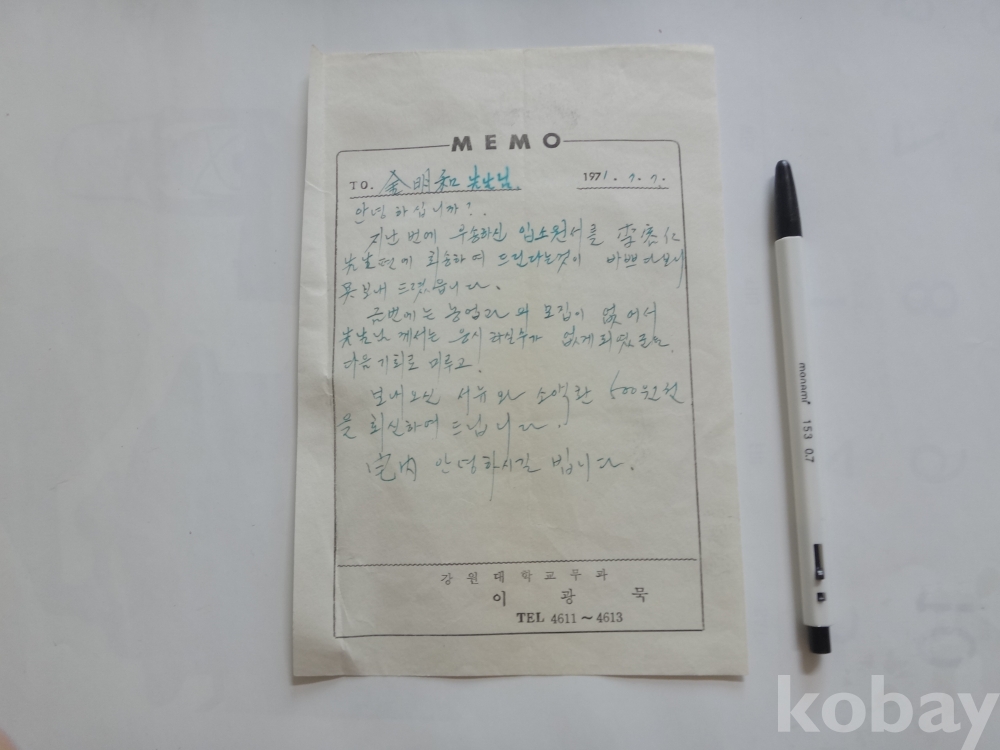 MEMO
TO. 金明和 先生님. 1971. 7. 7.
안녕하십니까?.
지난 번에 우송하신 입소원서를 李
先生편에 회송하여 드린다는것이 바쁘다보니
못보내 드렸읍니다.
금번에는 농업과 의 모집이 없어서
先生님 께서는 응시 하실수가 없게되었
다음기회로 미루고!
보내오신 서류와 소액환 500원
을 회신하여 드립니다.
宅內 안녕하시길 빕니다.
강원대학교무과
이 광 묵
TEL 4611~4613
monami 153 0.7
kobay